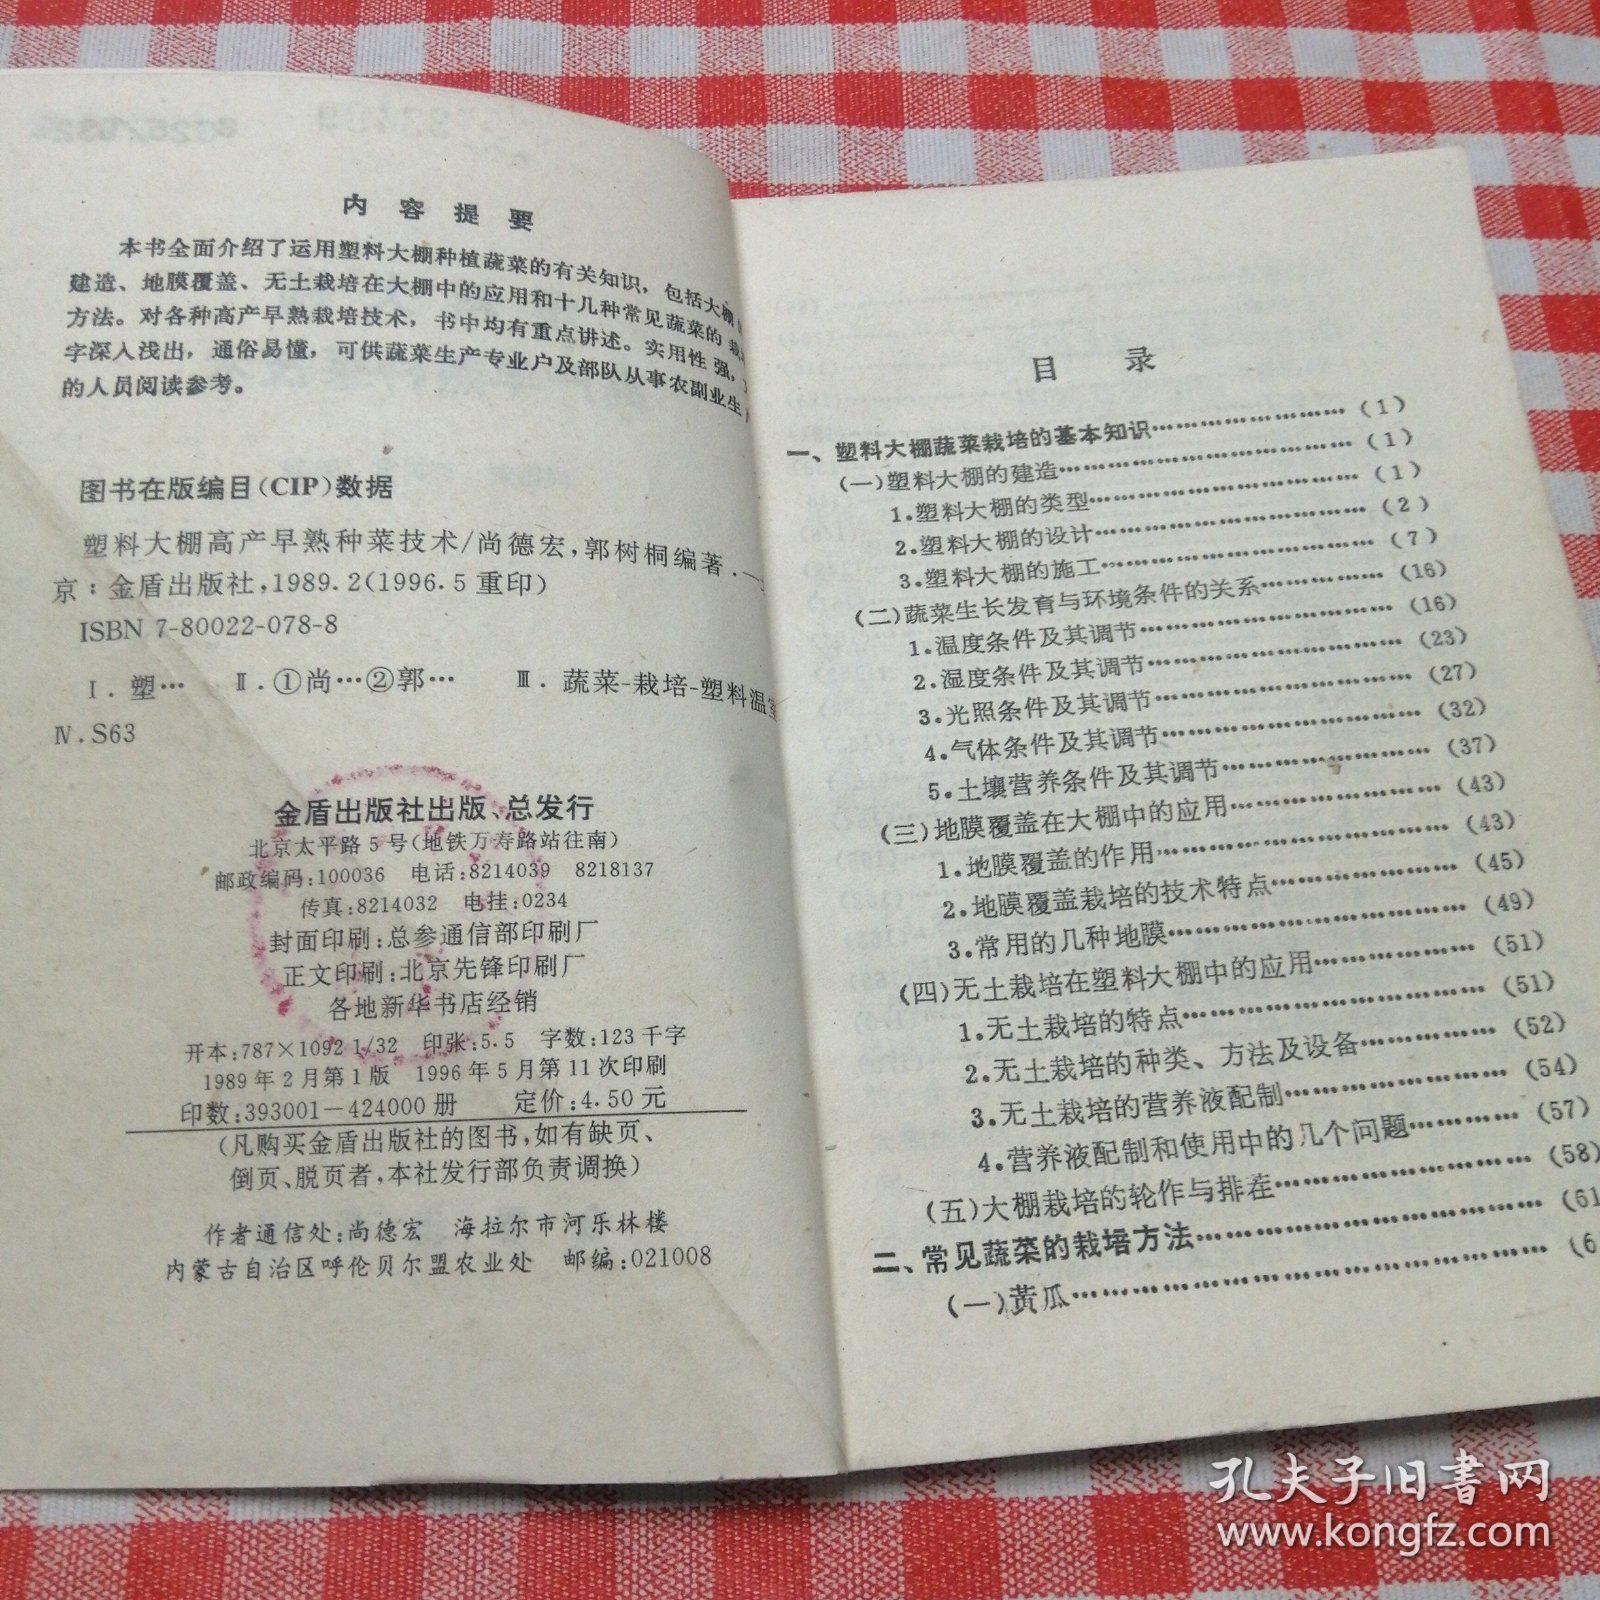 内容提要
本书全面介绍了运用塑料大棚种植蔬菜的有关知识，包括大棚
建造、地膜覆盖、无土栽培在大棚中的应用和十几种常见蔬菜的
方法。对各种高产早熟栽培技术，书中均有重点讲述。实用性强，
字深入浅出，通俗易懂，可供蔬菜生产专业户及部队从事农副业生
的人员阅读参考。
图书在版编目(CIP)数据
塑料大棚高产早熟种菜技术/尚德宏,郭树桐编著.—
京：金盾出版社,1989.2(1996.5重印)
ISBN 7-80022-078-8
Ⅰ.塑… Ⅱ.①尚…②郭… Ⅲ.蔬菜-栽培-塑料温室
Ⅳ.S63
金盾出版社出版、总发行
北京太平路5号(地铁万寿路站往南)
邮政编码:100036 电话:8214039 8218137
传真:8214032 电挂:0234
封面印刷:总参通信部印刷厂
正文印刷:北京先锋印刷厂
各地新华书店经销
开本:787×1092 1/32 印张:5.5 字数:123千字
1989年2月第1版 1996年5月第11次印刷
印数:393001—424000册 定价:4.50元
(凡购买金盾出版社的图书,如有缺页、
倒页、脱页者,本社发行部负责调换)
作者通信处:尚德宏 海拉尔市河乐林楼
内蒙古自治区呼伦贝尔盟农业处 邮编:021008
目录
一、塑料大棚蔬菜栽培的基本知识……………………(1)
(一)塑料大棚的建造……………………(1)
1.塑料大棚的类型……………………(1)
2.塑料大棚的设计……………………(2)
3.塑料大棚的施工……………………(7)
(二)蔬菜生长发育与环境条件的关系……………(16)
1.温度条件及其调节……………………(16)
2.湿度条件及其调节……………………(23)
3.光照条件及其调节……………………(27)
4.气体条件及其调节……………………(32)
5.土壤营养条件及其调节…………………(37)
(三)地膜覆盖在大棚中的应用…………………(43)
1.地膜覆盖的作用……………………(43)
2.地膜覆盖栽培的技术特点………………(45)
3.常用的几种地膜……………………(49)
(四)无土栽培在塑料大棚中的应用……………(51)
1.无土栽培的特点……………………(51)
2.无土栽培的种类、方法及设备……………(52)
3.无土栽培的营养液配制…………………(54)
4.营养液配制和使用中的几个问题…………(57)
(五)大棚栽培的轮作与排茬…………………(58)
二、常见蔬菜的栽培方法……………………(61
(一)黄瓜……………………………………(6
孔夫子旧书网
www.kongfz.com